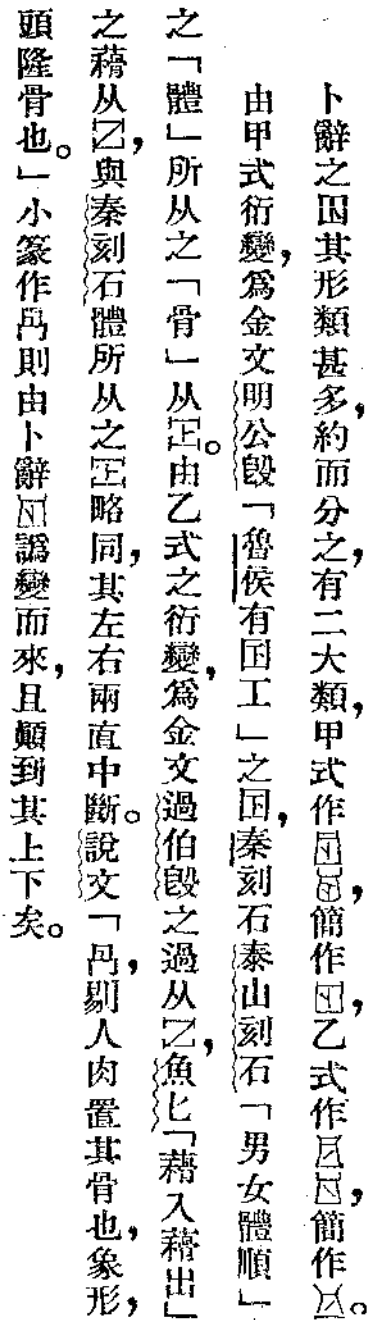 卜辭之囚其形類甚多，約而分之，有二大類，甲式作，簡作，乙式作，簡作。
由甲式衍變，爲金文明公𣪘「魯侯有囯工」之囯，秦刻石泰山刻石「男女體順」
之「體」所从之「骨」从。由乙式之衍變，爲金文過伯𣪘之過从，魚匕「藉入藉出」
之藉从，與秦刻石體所从之略同，其左右兩直中斷。說文「冎，剔人肉置其骨也，象形，
頭隆骨也。」小篆作冎則由卜辭譌變而來，且顛到其上下矣。